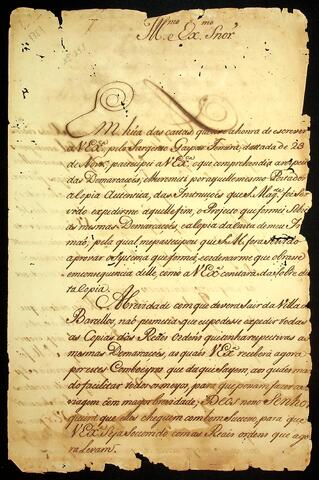 Mᵐᵒ e Exᵐᵒ Snor
Em hũa das cartas que tive a honra de escrever
a VExᶜᵃ pelo Sargento Gaspar datada de 23
de Novᵒ, participei a VExᶜᵃ o que comprehendia a respeito
das Demarcaçoés, e heremeti por aquelle mesmo Portador
a Copia Autentica, das Instruçoẽs que S. Magᵉ foi ser-
vido expedirme aquelle fim, o Projecto que formei sobre
as mesmas Demarcaçoẽs, e a Copia da Carta de meu Ir-
maõ, pela qual me participou que S. M. fora servido
aprovar o Systema que formei, e ordenarme que obrase
em consequencia delle, como a VExᶜᵃ constará da sobredi-
ta Copia.
A brevidade com que deveria sair da Villa de
Barcellos, naõ permetia que se podese expedir todas
as Copias das Reaes Ordens que tenhaõ respectivas as
mesmas Demarcaçoẽs, as quais VExᶜᵃ receberá agora
por estes Comboeyros, que daqui sayem, aos quáes man-
do facilitar todos os meyos, para que posaõ fazer a
viagem com mayor brevidade, Deos nosso Senhor
queira que elles cheguem com bom sucesso, para que
VExᶜᵃ seja socorrido com as Reáis ordens que ago-
ra levaõ.